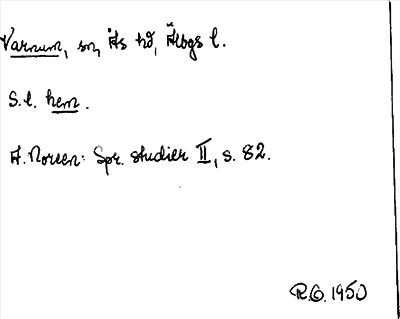 Varnum, sn, Ås hd, Älvsbgs l.
S.l. hem.
A. Noreen: Spr. studier II, s. 82.
R.O. 1950